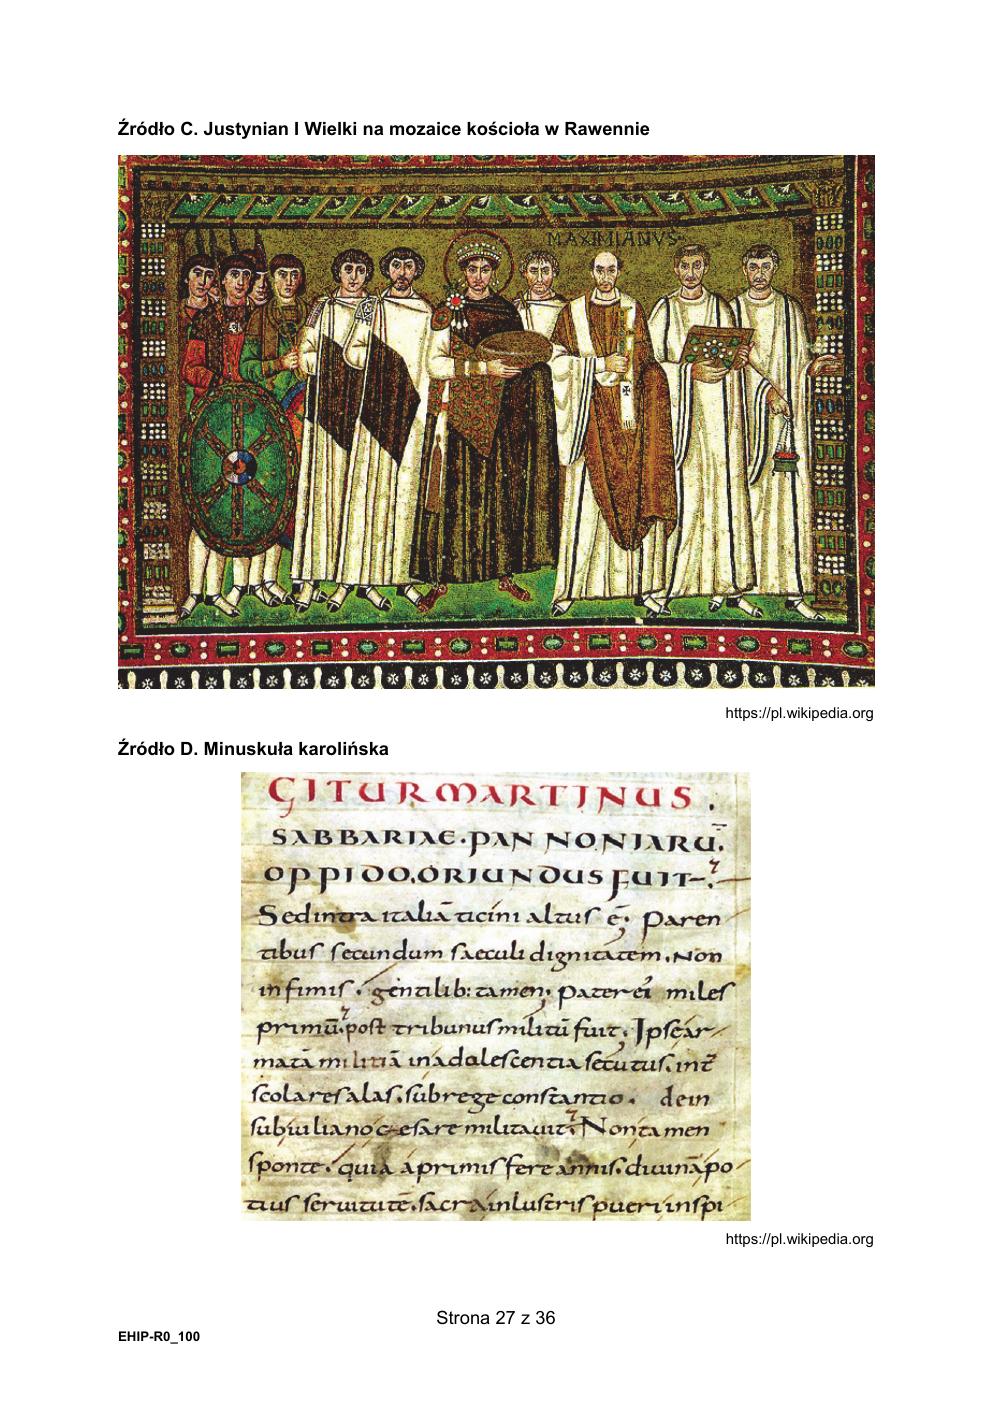 Źródło C. Justynian I Wielki na mozaice kościoła w Rawennie
MAXIMIANVS
https://pl.wikipedia.org
Źródło D. Minuskuła karolińska
GITUR MARTINUS .
SABBARIAE · PANNONIARŪ .
OPPIDO . ORIUNDUS FUIT
Sed intra italiā ticini altus ē . Paren
tibus secundum saeculi dignitatem . Non
infimis . gentilib : tamen . Pater ei miles
primū . post tribunus militū fuit . Ipse ar
matā militiā in adolescentia secutus . int
scolares alas . sub rege constantio . dein
sub iuliano caesare militauit . Non tamen
sponte . quia a primis fere annis . diuinā po
tius seruitutē . sacra inlustris pueri inspi
https://pl.wikipedia.org
Strona 27 z 36
EHIP-R0_100